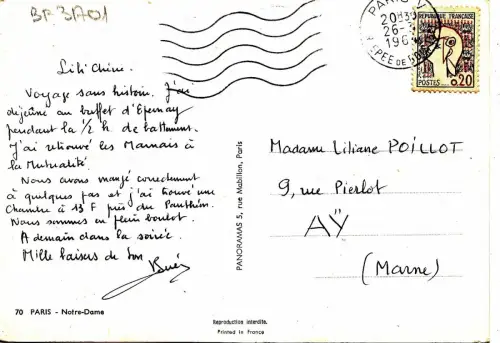 BP 3A01
PARIS V
20H30
26-
196
R. EPEE DE BOIS
REPUBLIQUE FRANCAISE
POSTES 0,20
Lili Chérie.
Voyage sans histoire. J'ai
déjeuné au buffet d'Epernay
pendant la 1/2 h de battement.
J'ai retrouvé les Marnais à
la Mutualité.
Nous avons mangé correctement
à quelques pas et j'ai trouvé une
chambre à 13 F près du Panthéon.
Nous sommes en plein boulot.
A demain dans la soirée.
Mille baisers de ton
70 PARIS - Notre-Dame
PANORAMAS 5, rue Mabillon, Paris
Madame Liliane POILLOT
9, rue Pierlot
AŸ
(Marne)
Reproduction interdite.
Printed in France